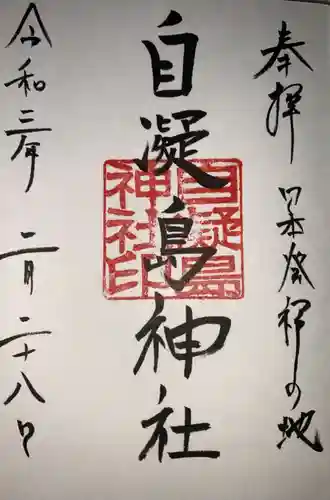 奉拝 日本発祥の地
自凝島神社
自凝島神社印
令和三年 二月二十八日